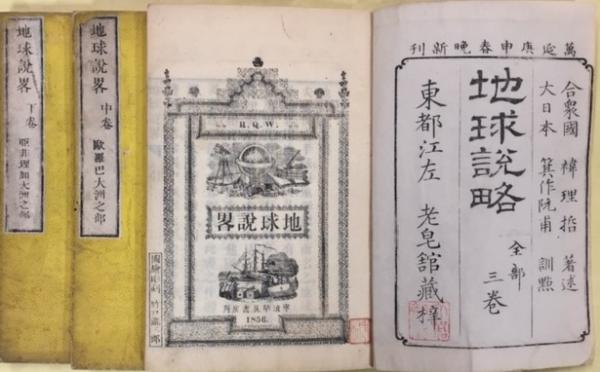 萬延庚申春晚新刊
合衆國 褘理哲 著述
大日本 箕作阮甫 訓點
地球說略 全部 三卷
東都江左 老皂館藏梓
R. Q. W.
地球說畧
1856.
地球說畧 中卷
歐羅巴大洲之部
地球說畧 下卷
亞非理加大洲之部